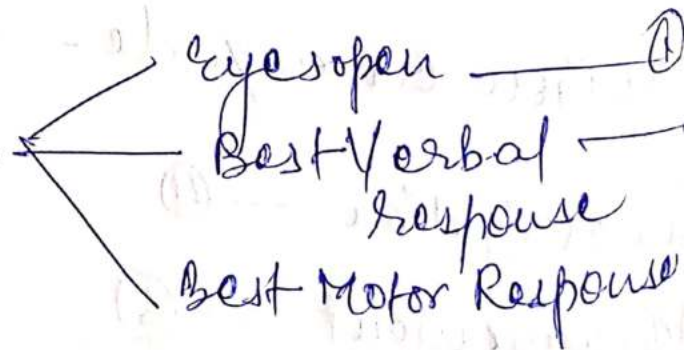 Eyes open
Best Verbal
response
Best Motor Response